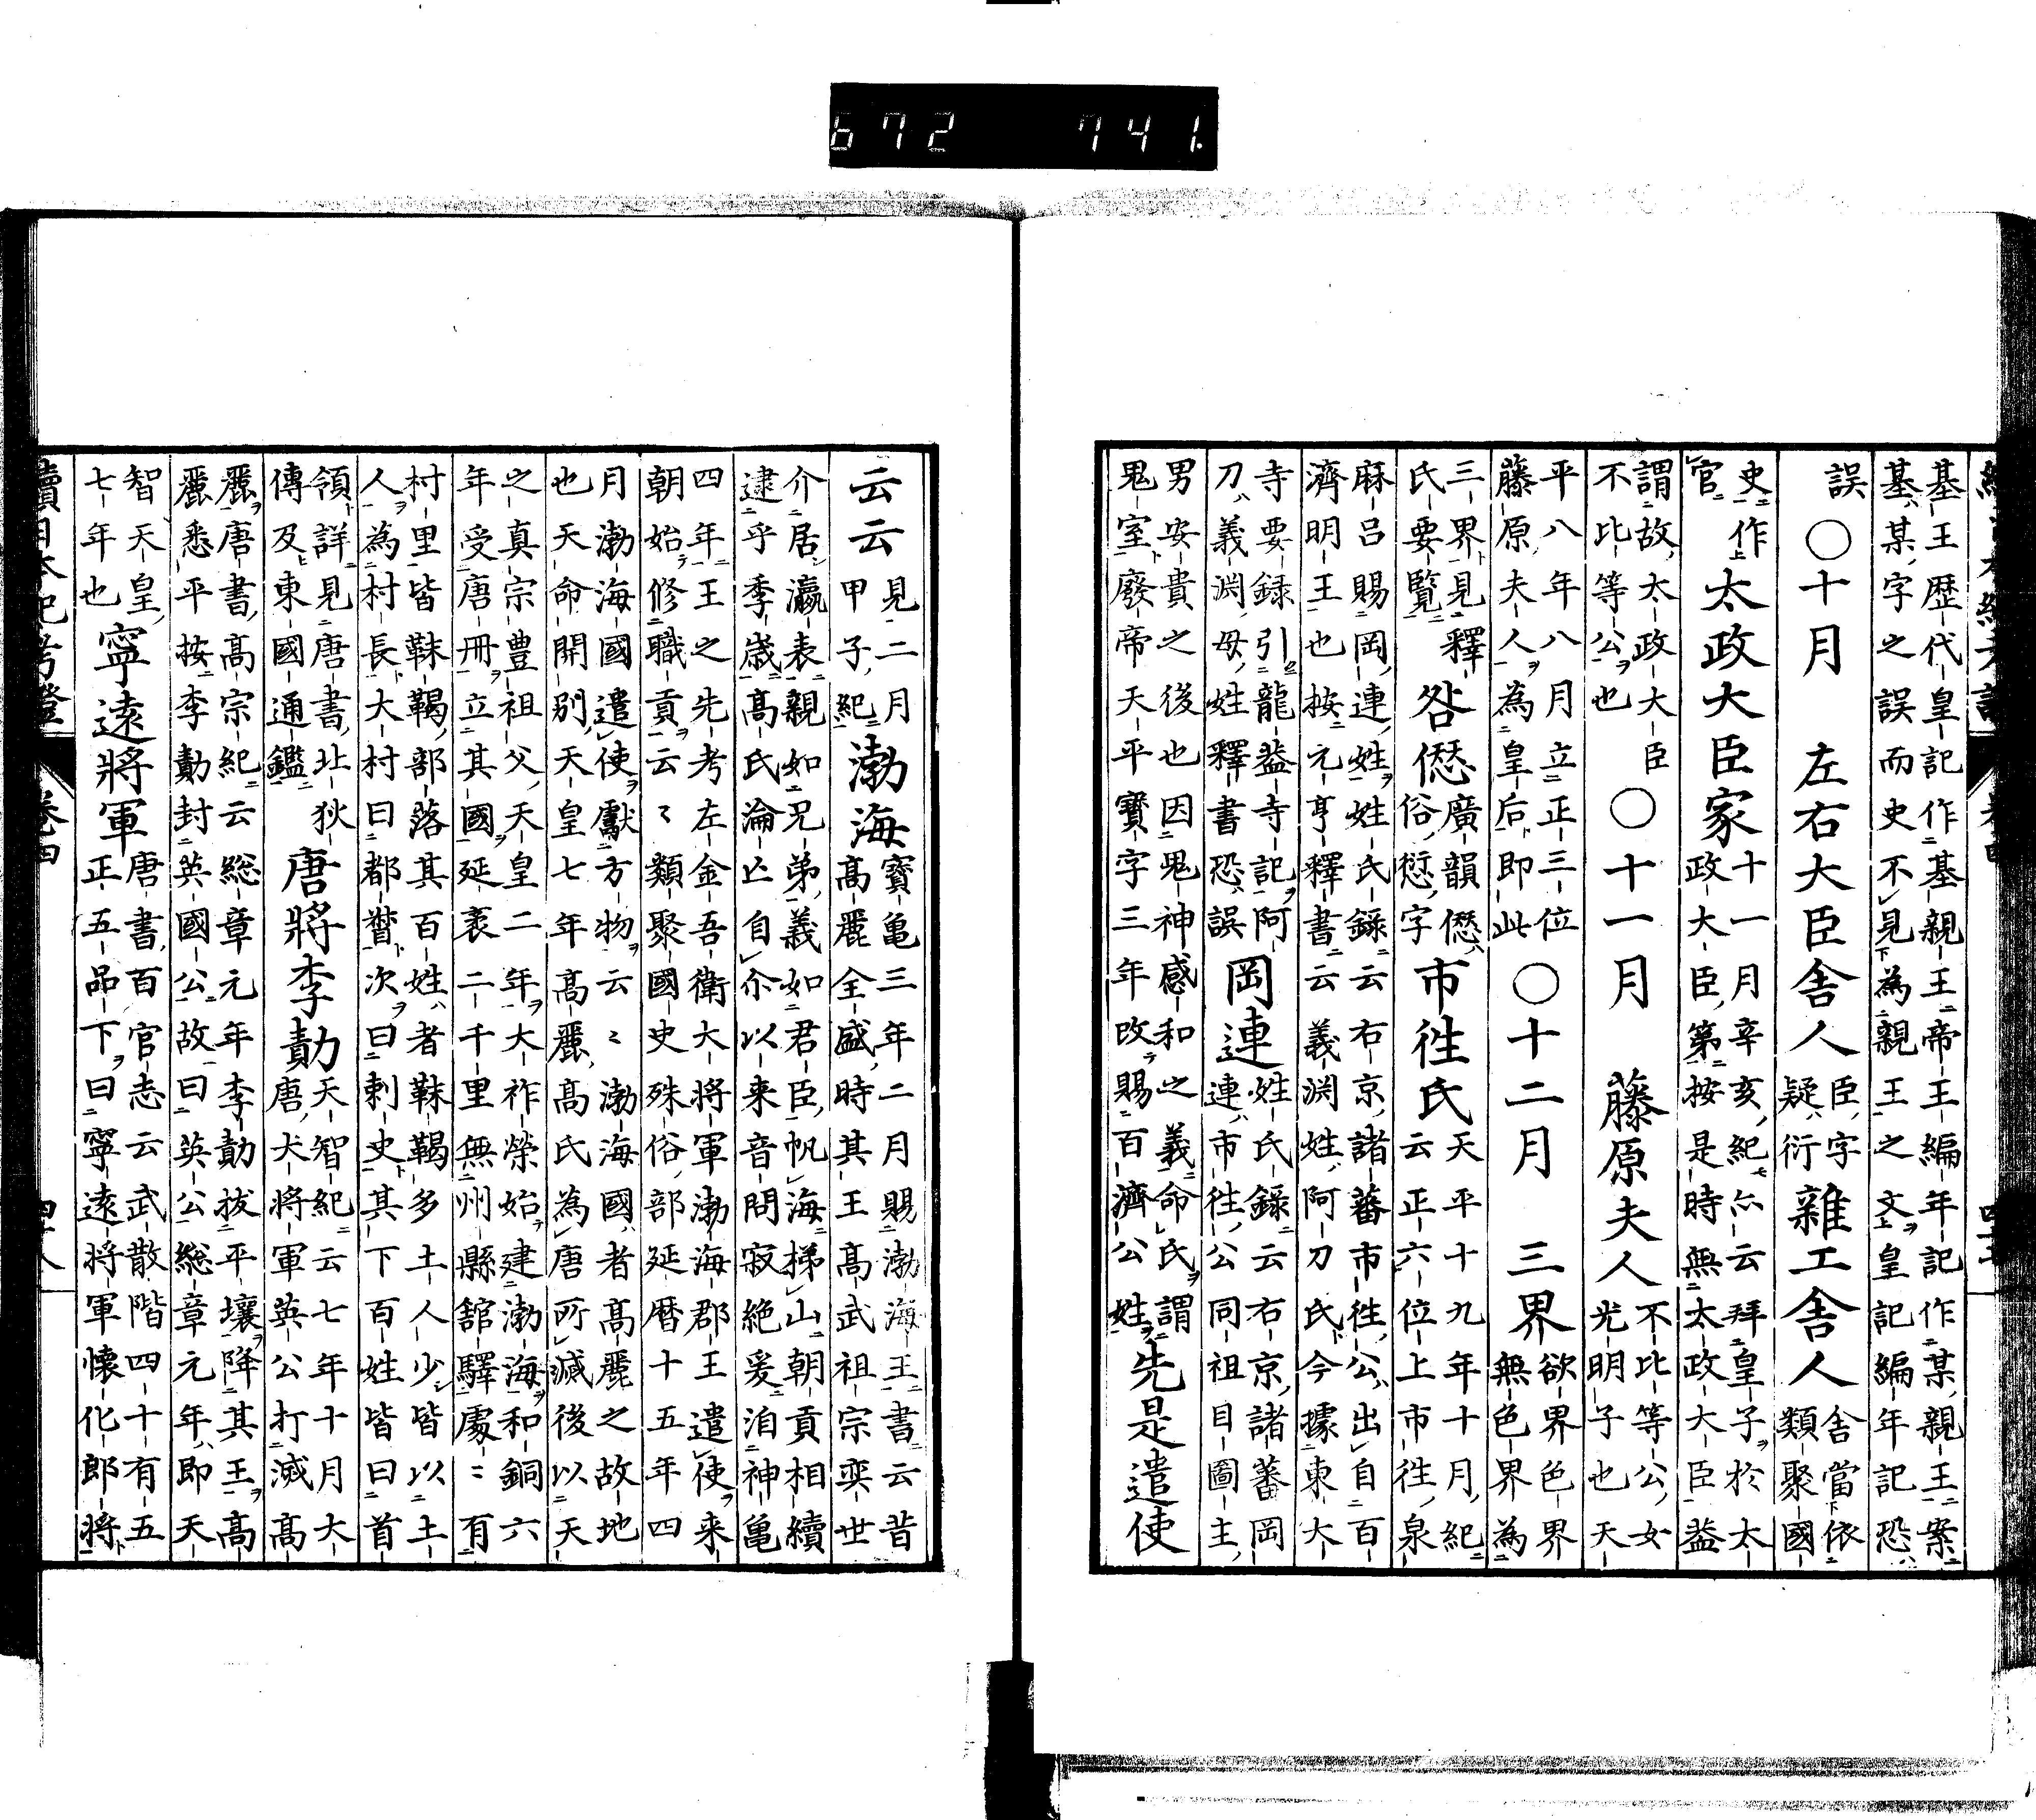 672 741.
基王歴代皇記作基親王帝王編年記作某親王案
基某字之誤而史不見為親王之文皇記編年記恐
誤
〇十月 左右大臣舎人
臣字
疑衍
雜工舍人
舎當依
類聚國
史作
官
太政大臣家
十一月辛亥紀亦云拜皇子於太
政大臣第按是時無太政大臣益
謂故太政大臣
不比等公也
〇十一月 藤原夫人
不比等公女
光明子也天
平八年八月立正三位
藤原夫人為皇后即此
〇十二月 三界
欲界色界
無色界為
三界見釋
氏要覽
咎僁
廣韻僁
俗愆字
市徃氏
天平十九年十月紀
云正六位上市徃泉
麻呂賜岡連姓姓氏錄云右京諸蕃市徃公出自百
濟明王也按元亨釋書云義渊姓阿刀氏今據東大
寺要録引龍蓋寺記阿
刀義渊母姓釋書恐誤
岡連
姓氏録云右京諸蕃岡
連市徃公同祖目圖主
男安貴之後也因鬼神感和之義命氏謂
鬼室廢帝天平寶字三年改賜百濟公姓
先是遣使
云云
見二月
甲子紀
渤海
寶亀三年二月賜渤海王書云昔
髙麗全盛時其王髙武祖宗奕世
介居瀛表親如兄弟義如君臣帆海梯山朝貢相續
逮乎季歳髙氏淪亡自尒以来音問寂絶爰洎神亀
四年王之先考左金吾衛大将軍渤海郡王遣使来
朝始修職貢云〻類聚國史殊俗部延暦十五年四
月渤海國遣使獻方物云〻渤海國者髙麗之故地
也天命開别天皇七年髙麗髙氏為唐所滅後以天
之真宗豊祖父天皇二年大祚榮始建渤海和銅六
年受唐冊立其國延袤二千里無州縣舘驛處〻有
村里皆靺鞨部落其百姓者靺鞨多土人少皆以土
人為村長大村曰都督次曰刺史其下百姓皆曰首
領詳見唐書北狄
傳及東國通鑑
唐將李勣
天智紀云七年十月大
唐大将軍英公打滅髙
麗唐書髙宗紀云総章元年李勣拔平壤降其王髙
麗悉平按李勣封英國公故曰英公総章元年即天
智天皇
七年也
寧遠將軍
唐書百官志云武散階四十有五
正五品下曰寧遠将軍懐化郎将
續日本紀考證 卷四 四十八